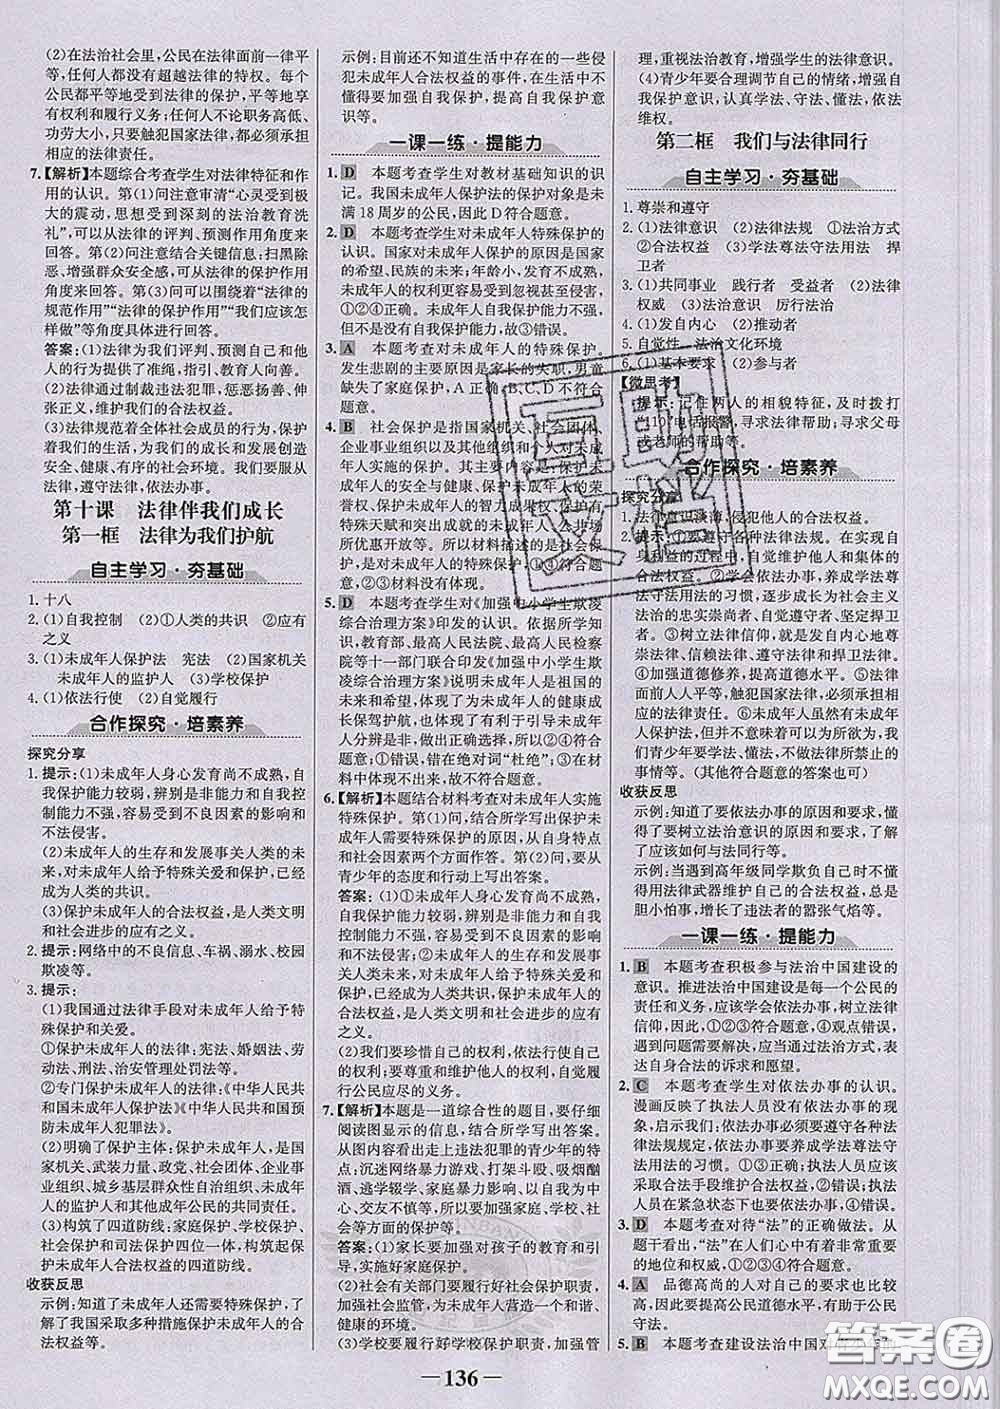 (2)在法治社会里,公民在法律面前一律平
等,任何人都没有超越法律的特权。每个
公民都平等地受到法律的保护,平等地享
有权利和履行义务;任何人不论职务高低、
功劳大小,只要触犯国家法律,都必须承担
相应的法律责任。
7.【解析】本题综合考查学生对法律特征和作
用的认识。第(1)问注意审清“心灵受到极
大的震动,思想受到深刻的法治教育洗
礼”,可以从法律的评价、预测作用角度来
回答。第(2)问注意结合关键信息:扫黑除
恶、增强群众安全感,可从法律的保护作用
角度来回答。第(3)问可以围绕着“法律的
规范作用”“法律的保护作用”“我们应该怎
样做”等角度具体进行回答。
答案:(1)法律为我们评判、预测自己和他
人的行为提供了准绳,指引、教育人向善。
(2)法律通过制裁违法犯罪,惩恶扬善、伸
张正义,维护我们的合法权益。
(3)法律规范着全体社会成员的行为,保护
着我们的生活,为我们的成长和发展创造
安全、健康、有序的社会环境。我们要服从
法律,遵守法律,依法办事。
第十课 法律伴我们成长
第一框 法律为我们护航
自主学习·夯基础
1. 十八
2. (1)自我控制 (2)①人类的共识 ②应有
之义
3. (1)未成年人保护法 宪法 (2)国家机关
未成年人的监护人 (3)学校保护
4. (1)依法行使 (2)自觉履行
合作探究·培素养
探究分享
1. 提示:(1)未成年人身心发育尚不成熟,自
我保护能力较弱,辨别是非能力和自我控
制能力不强,容易受到不良因素的影响和
不法侵害。
(2)未成年人的生存和发展事关人类的未
来,对未成年人给予特殊关爱和保护,已经
成为人类的共识。
(3)保护未成年人的合法权益,是人类文明
和社会进步的应有之义。
2. 提示:网络中的不良信息、车祸、溺水、校园
欺凌等。
3. 提示:
(1)我国通过法律手段对未成年人给予特
殊保护和关爱。
①保护未成年人的法律:宪法、婚姻法、劳
动法、刑法、治安管理处罚法等。
②专门保护未成年人的法律:《中华人民共
和国未成年人保护法》《中华人民共和国预
防未成年人犯罪法》。
(2)明确了保护主体:保护未成年人,是国
家机关、武装力量、政党、社会团体、企业事
业组织、城乡基层群众性自治组织、未成年
人的监护人和其他成年公民的共同责任。
(3)构筑了四道防线:家庭保护、学校保护、
社会保护和司法保护四位一体,构筑起保
护未成年人合法权益的四道防线。
收获反思
示例:知道了未成年人还需要特殊保护,了
解了我国采取多种措施保护未成年人的合
法权益等。
示例:目前还不知道生活中存在的一些侵
犯未成年人合法权益的事件,在生活中不
懂得要加强自我保护,提高自我保护意
识等。
一课一练·提能力
1. D 本题考查学生对教材基础知识的识
记。我国未成年人保护法的保护对象是未
满18周岁的公民,因此D符合题意。
2. D 本题考查学生对未成年人特殊保护的
认识。国家对未成年人的保护原因是国家
的希望、民族的未来;年龄小,发育不成熟,
未成年人的权利更容易受到忽视甚至侵
害,①②④正确。未成年人自我保护能力不强,
但不是没有自我保护能力,故③错误。
3. A 本题考查对未成年人的特殊保护。
发生悲剧的主要原因是家长的失职,男童
缺失了家庭保护,A正确;B、C、D不符合
题意。
4. B 社会保护是指国家机关、社会团体、
企业事业组织以及其他组织和个人对未成
年人实施的保护。保护未成年人的荣誉
权,不得披露未成年人的个人隐私,保护有
特殊天赋和有突出成就的未成年人,公共场
所优惠开放等,都是社会保护。材料是社会保
护,是对未成年人的特殊保护,①④符合题
意,故选B;②③材料没有体现。
5. D 本题考查学生对《加强中小学生欺凌
综合治理方案》印发的认识。依据所学知
识,教育部、最高人民法院、最高人民检察
院等十一部门联合印发《加强中小学生欺
凌综合治理方案》说明未成年人是国家的
未来和希望,国家重视未成年人的健康成
长;这一方案的出台有利于为未成年人成
长保驾护航,有利于引导未成年人提高自
我保护能力,所以①②④正确;未成年人
分辨是非能力较弱,但不能说没有分辨是
非能力,③错误,在于绝对词“杜绝”;D符合
题意。
6.【解析】本题结合材料考查对未成年人实施
特殊保护。第(1)问,结合所学写出保护未
成年人需要特殊保护的原因,从自身特点
和社会因素两个方面作答。第(2)问,要从
青少年的态度和行动上写出答案。
答案:(1)①未成年人身心发育尚不成熟,
自我保护能力较弱,辨别是非能力和自我
控制能力不强,容易受到不良因素的影响
和不法侵害;②未成年人的生存和发展事
关人类的未来,对未成年人给予特殊关爱
和保护,已经成为人类的共识;③保护未成
年人的合法权益,是人类文明和社会进步的
应有之义。
(2)我们要珍惜自己的权利,依法行使自己
的权利,尊重和维护他人的权利,自觉履行
公民应尽的义务。
7.【解析】本题是一道综合性的题目,要仔细
阅读图显示的信息,结合所学写出答案。
从图内容看出走上违法犯罪的青少年的特
点:沉迷网络暴力游戏、打架斗殴、吸烟酗
酒、逃学辍学、家庭暴力影响、以自我为中
心、交友不慎等,所以要加强家庭、学校、社
会等方面的保护等。
答案:(1)家长要加强对孩子的教育和引
导,实施好家庭保护。
(2)社会有关部门要履行好社会保护职责,
加强社会监管,为未成年人营造一个和谐、
健康的环境。
(3)学校要履行好学校保护职责,加强管
理,重视法治教育,增强学生的法律意识。
(4)青少年要合理调节自己的情绪,增强自
我保护意识,认真学法、守法、懂法,依法
维权。
第二框 我们与法律同行
自主学习·夯基础
1. 尊崇和遵守
2. (1)法律意识 (2)法律法规 ①法治方式
②合法权益 (3)学法尊法守法用法 捍
卫者
3. (1)共同事业 践行者 受益者 (2)法律
权威 (3)法治意识 厉行法治
4. (1)发自内心 (2)推动者
5. 自觉性 法治文化环境
6. (1)基本要求 (2)参与者
【微思考】
提示:记住两人的相貌特征,及时拨打
“110”电话报警,寻求法律帮助;寻求父母
或老师的帮助等。
合作探究·培素养
探究分享
1. 法律意识淡薄,侵犯他人的合法权益。
2. ①要遵守各种法律法规。在实现自
身权益的过程中,自觉维护他人和集体的
合法权益。②要依法办事,养成学法尊法
守法用法的习惯,逐步成长为社会主义法
治的忠实崇尚者、自觉遵守者、坚定捍卫者。
③要树立法律信仰,就是发自内心地尊
崇法律、信赖法律、遵守法律和捍卫法律。
④加强道德修养,提高道德水平。⑤法律
面前人人平等,触犯国家法律,要承担法律
责任。⑥未成年人虽然有未成年人保护
法,但并不意味着可以为所欲为,我们
青少年要学法、懂法,不做法律所禁止的
事情等。(其他符合题意的答案也可)
收获反思
示例:知道了要依法办事的原因和要求,懂
得了要树立法治意识的原因和要求,了解
了应该如何与法同行等。
示例:当遇到高年级同学欺负自己时不懂
得用法律武器维护自己的合法权益,总是
胆小怕事,增长了违法者的嚣张气焰等。
一课一练·提能力
1. B 本题考查积极参与法治中国建设的
意识。推进法治中国建设是每一个公民的
责任和义务,应该学会依法办事,树立法律
信仰,因此,①②③符合题意,④观点错误,
遇到问题需要解决,应通过法治方式,表达
自身合法的诉求和愿望。
2. C 本题考查学生对依法办事的认识。
漫画反映了执法人员没有依法办事的现
象,启示我们:依法办事必须要遵守各种法
律法规规定,依法办事要养成学法尊法守
法用法的习惯。①③正确;执法人员应该
采取合法手段维护合法权益,②错误;执法
人员在紧急状态下也要依法办事,④错误。
3. D 本题考查对待“法”的正确做法。从
题干看出,“法”在人们生活中有着非常重
要的地位和权力,①②③正确;④错误。
4. A 品德高尚的人对自己的要求也比较
高,因此要提高公民道德水平,有助于公民
守法。
5. B 本题考查建设法治中国对
136
互助文档
答案圈
MXQE.COM